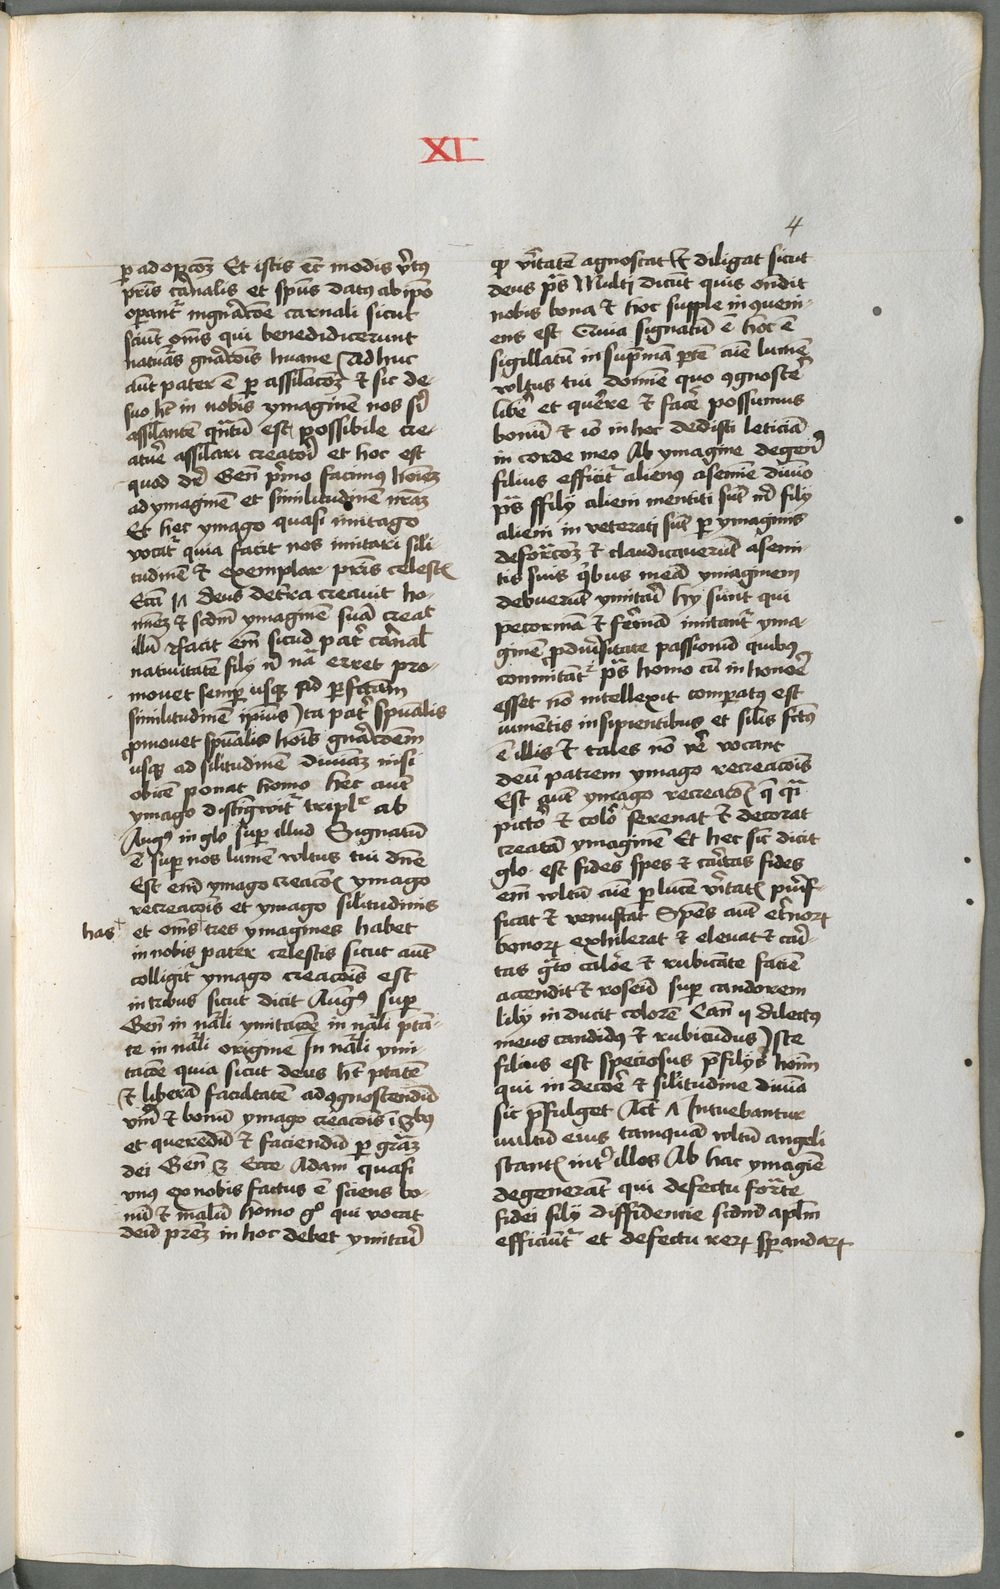 XL
4
p ad opcōꝫ Et istis ēt modis v̄tꝰ
pr̄is cānalis et spūs datꝰ ab ipō
operant᷑ in gn̄ac̄oe carnali sicut
sciūt om̄s qui bene didicerunt
naturas gn̄ac̄ois hūane Ad huc
aūt pater ē p assilac̄oꝫ ⁊ sic de
suo hꝫ in nobis ymaginē nos sī
assilantē qn̄tū est possibile cre-
atūe assilari creatōi et hoc est
quod dr̄ Gen̄ pmo faciamus hoīeꝫ
ad ymaginē et similitudinē nr̄aꝫ
Et hec ymago quasi imitago
vocat᷑ quia facit nos imitari sili
tudinē ⁊ exemplar pr̄is celestꝭ
deus de tr̄ra creauit ho-
mineꝫ ⁊ scdm̄ ymaginē suā creat
illū ⁊ facit em̄ sicud pat̄ cānal
natiuitatē filij nā erret pro-
mouet semp usqꝫ ad pfcam
similitudinē ipius Ita pat̄ spūalis
pmouet spūalis hoīs gn̄ac̄oem
usqꝫ ad silitudinē diuinaꝫ nisi
obicē ponat homo hec aūt
ymago distigwit᷑ triplr̄ ab
Augꝰ in glo sup illud Signatū
ē sup nos lumē wltus tui dn̄e
Est em̄ ymago creac̄oꝭ ymago
recreac̄ois et ymago silitudinis
has
et om̄s tres ymagines habet
in nobis pater celestis sicut aūt
colligit᷑ ymago creac̄ois est
in tribus sicut dicit Augꝰ sup
Gen̄ in nāli ymitac̄oe in nāli ptā-
te in nāli origine In nāli ymi-
tac̄oe quia sicut deus hꝫ ptatē
⁊ liberā facultatē ad ꝯgnoscendū
vm̄ ⁊ bonū ymago creac̄ois
et querēdū ⁊ faciendū p grāꝫ
dei Gen̄ Ecce Adam quasi
vnꝰ ex nobis factus ē sciens bo-
nū ⁊ malū homo gͦ qui vocat
deū pr̄eꝫ in hoc debet ymitarī
ꝙ v̄itatē agnoscat ⁊ diligat sicut
deus ps̄ Multi dicūt quis ondit
nobis bona ⁊ hoc supple inqueni-
ens est Quia signatū ē hoc ē
sigillatū in supmā ptē aīe lumē
wltus tui domīe quo ꝯgnoscē
libē et querē ⁊ facē possumus
bonū ⁊ iō in hoc dedisti leticiā
in corde meo Ab ymagine degen̄
filius efficit᷑ alienꝰ a semīe diuīo
ps̄ ffilij alieni mentiti sūt m̄ filij
alieni in veterati sūt p ymaginis
deformac̄oꝫ ⁊ claudicauerūt a semi-
tis suis qbus meā ymaginem
debuerūt ymitari hij sunt qui
pecorinā ⁊ ferinā imitant᷑ yma-
ginē p diu̅sitate passionū quibus
conmitāt᷑ ps̄ homo cū in honoē
esset nō intellexit comparatꝰ est
iumētis insipientibus et silis fctus
ē illis ⁊ tales nō vē vocant
deū patrem ymago recreac̄ois
Est aūt ymago recreac̄oꝭ q̄ qi
pictō ⁊ colō serenat ⁊ decorat
creatā ymaginē Et hec sic̄ dicit
glo est fides spes ⁊ cāitas fides
em̄ wltū aīe p lucē v̄itatꝭ puri-
ficat ⁊ venustat Spes aūt et̄noꝝ
bonoꝝ exhilerat ⁊ eleuat ⁊ cāi-
tas gto calōe ⁊ rubicāte faciē
accendit ⁊ roseū sup candorem
lilij in ducit colorē Can̄ ij dilectꝰ
meus candidꝰ ⁊ rubicūdus Iste
filius est speciosus p filijs homī
qui in decōe ⁊ silitudine diuīa
sic p̄fulget Act Intuebantur
vultū eius tamquā wltū angeli
stantꝭ int̄ illos Ab hac ymagīe
degenerāt qui defectu formate
fidei filij diffidencie scdm̄ aplm̄
efficiūt᷑ et defectu rerꝝ sperandarꝝ